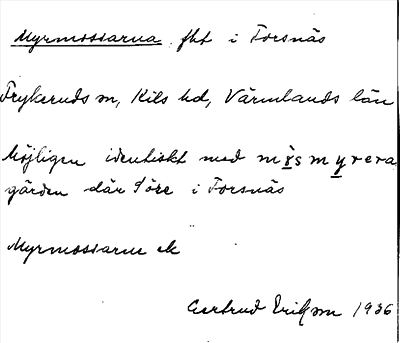 Myrmossarna fht i Forsnäs
Frykeruds sn, Kils hd, Värmlands län
Möjligen identiskt med mɤ̀s my̲rera
gärden där Töre i Forsnäs
Myrmossarne ek
Gertrud Erikson 1936